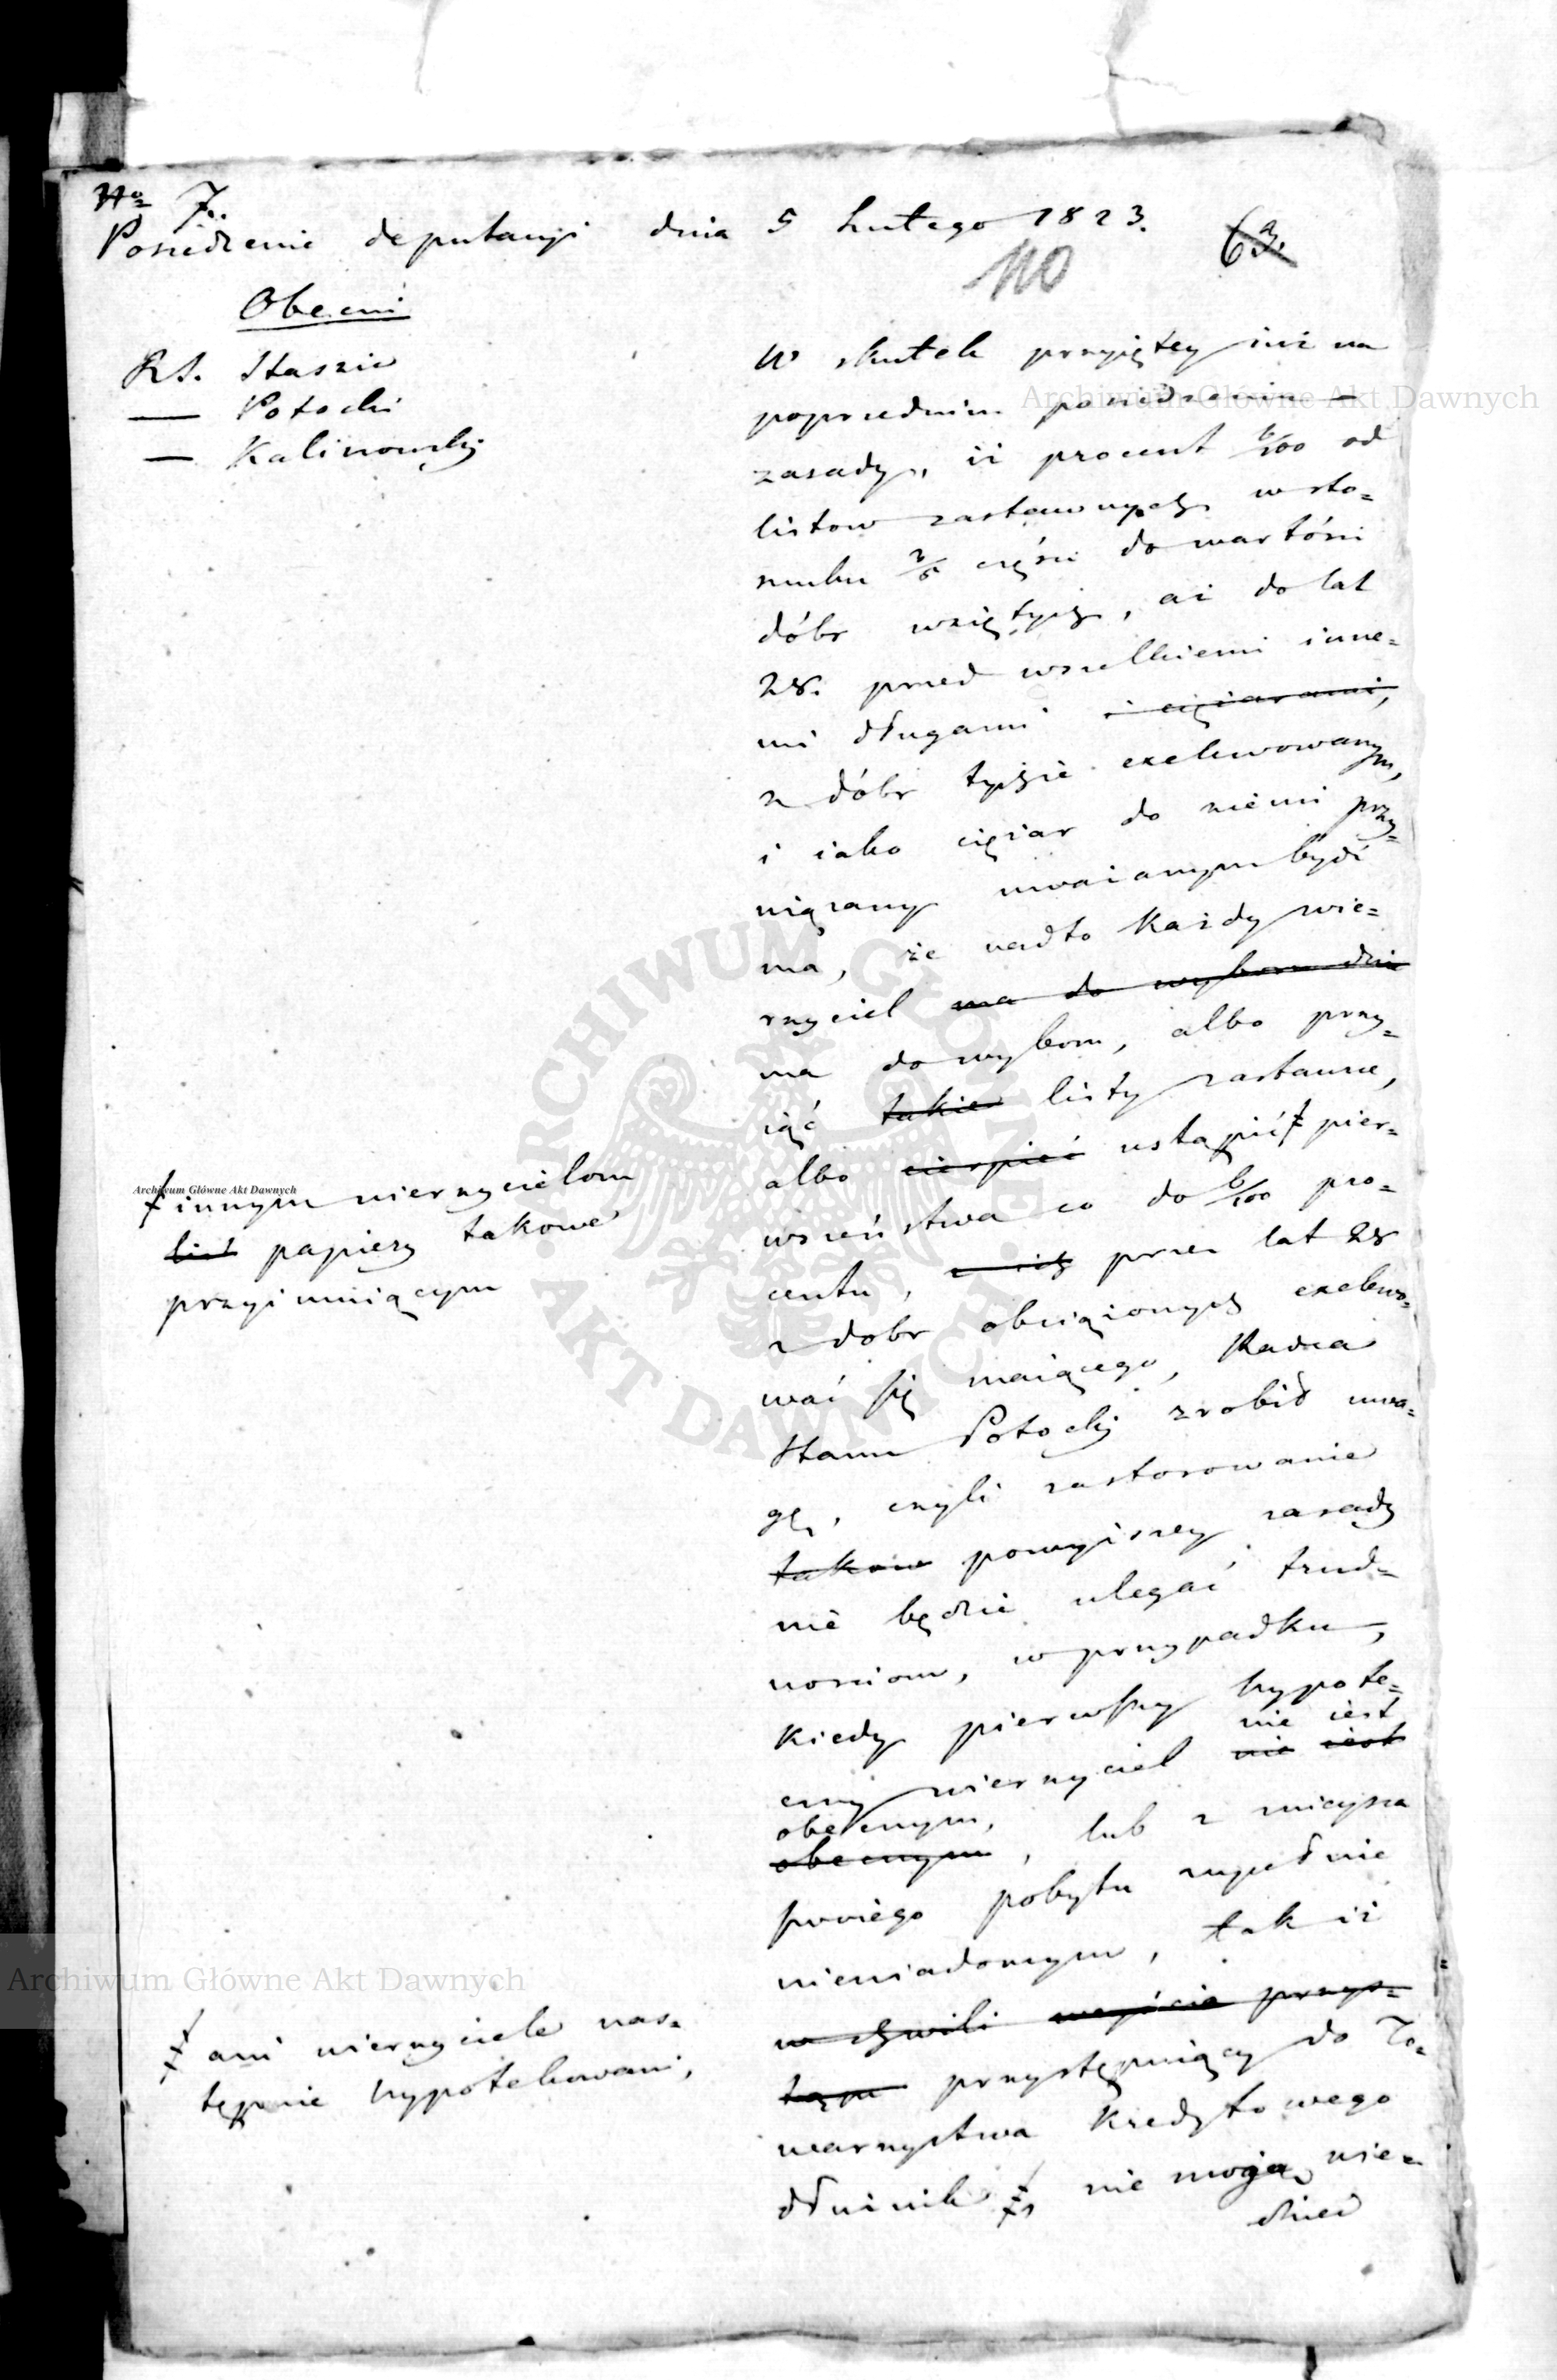 No 7.
Posiedzenie deputacyi dnia 5 Lutego 1823.
63.
110
Obecni
RS. Staszic
— Potocki
— Kalinowski
W skutek przyiętey iuż na
poprzedniem posiedzeniu
zasady, iż procent 6/100 od
listow zastawnych w sto=
sunku 2/5 części do wartości
dóbr wziętych, aż do lat
28. przed wszelkiemi inne=
mi długami i ciężarami,
z dóbr tychże exekwowanym,
i iako ciężar do ziemi przy=
wiązany uważanym bydź
ma, że nadto każdy wie=
rzyciel ma do wyboru dni
ma do wyboru, albo przy=
iąć takie listy zastawne,
albo cierpieć ustąpić ⨍ pier=
wszeństwa co do 6/100 pro=
centu, przez lat 28
z dobr obciążonych exekwo=
wać się maiącego, Radca
Stanu Potocki zrobił uwa=
gę, czyli zastosowanie
takow powyższey zasady
nie będzie ulegać trud=
nosciom, w przypadku,
kiedy pierwszy hypote=
czny wierzyciel nie iest
nie iest
obecnym,
obecnym, lub z mieysca
swoiego pobytu zupełnie
niewiadomym, tak iż
w chwili weyścia przys=
tępu przystępuiący do To=
warzystwa Kredytowego
dłużnik ⨎, nie mogą wie=
dzieć
⨍ innym wierzycielom
list papiery takowe
przyimuiącym
⨎ ani wierzyciele nas=
tępnie hypotekowani,
Archiwum Główne Akt Dawnych
Archiwum Główne Akt Dawnych
Archiwum Główne Akt Dawnych
ARCHIWUM GŁÓWNE AKT DAWNYCH